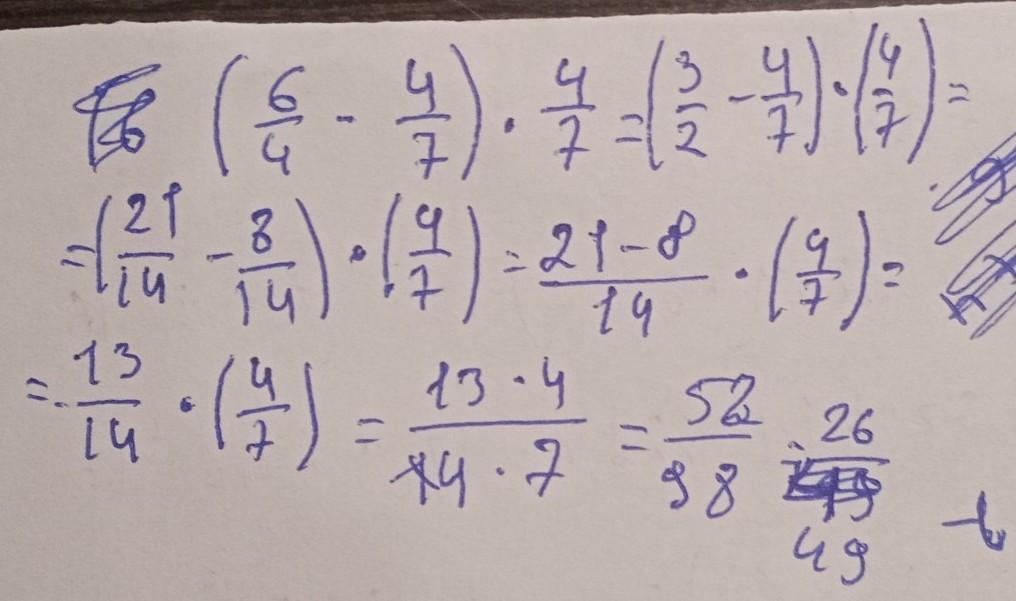 (6/4 - 4/7) · 4/7 = (3/2 - 4/7) · (4/7) =
= (21/14 - 8/14) · (4/7) = (21-8)/14 · (4/7) =
= 13/14 · (4/7) = (13·4)/(14·7) = 52/98 = 26/49